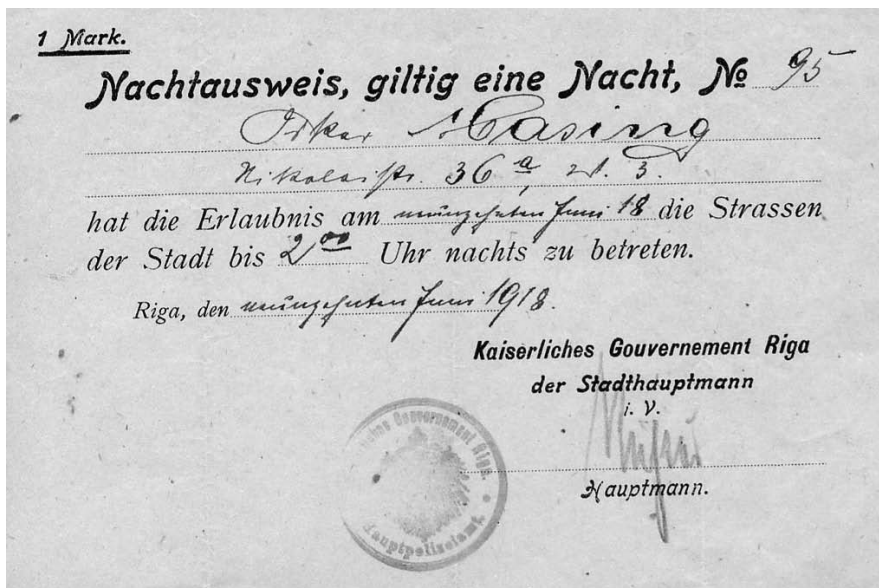 1 Mark.
Nachtausweis, giltig eine Nacht, № 95
Oskar Masing
Nikolaistr. 36ª, W. 3.
hat die Erlaubnis am neunzehnten Juni 18 die Strassen
der Stadt bis 2⁰⁰ Uhr nachts zu betreten.
Riga, den neunzehnten Juni 1918.
Kaiserliches Gouvernement Riga
der Stadthauptmann
i. V.
Hauptmann.
Gouvernement Riga.
Hauptpolizeiamt.